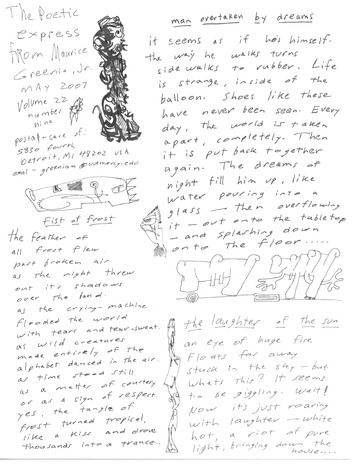 The Poetic
express
from Maurice
Greenia, Jr.
MAY 2007
Volume 22
number
nine
postal-care of:
5830 fourth
Detroit, MI 48202 USA
emal - greeniam@udmercy.edu
Fist of Frost
the feather of
all frost flew
past broken air
as the night threw
out its shadows
over the land.
as the crying-machine
flooded the world
with tears and tear-sweat.
as wild creatures
made entirely of the
alphabet danced in the air.
as time stood still
as a matter of courtesy
or as a sign of respect.
yes, the tangle of
frost turned tropical,
like a kiss and drove
thousands into a trance...
man overtaken by dreams
it seems as if he's himself.
the way he walks turns
sidewalks to rubber. Life
is strange, inside of the
balloon. Shoes like these
have never been seen. Every
day, the world is taken
apart, completely. Then
it is put back together
again. The dreams of
night fill him up, like
water pouring into a
glass — then overflowing
it — out onto the tabletop
— and splashing down
onto the floor.....
the laughter of the sun
an eye of huge fire
floats far away
stuck in the sky — but
whats this? It seems
to be giggling. Wait!
Now it's just roaring
with laughter — white
hot, a riot of pure
light, bringing down the
house....